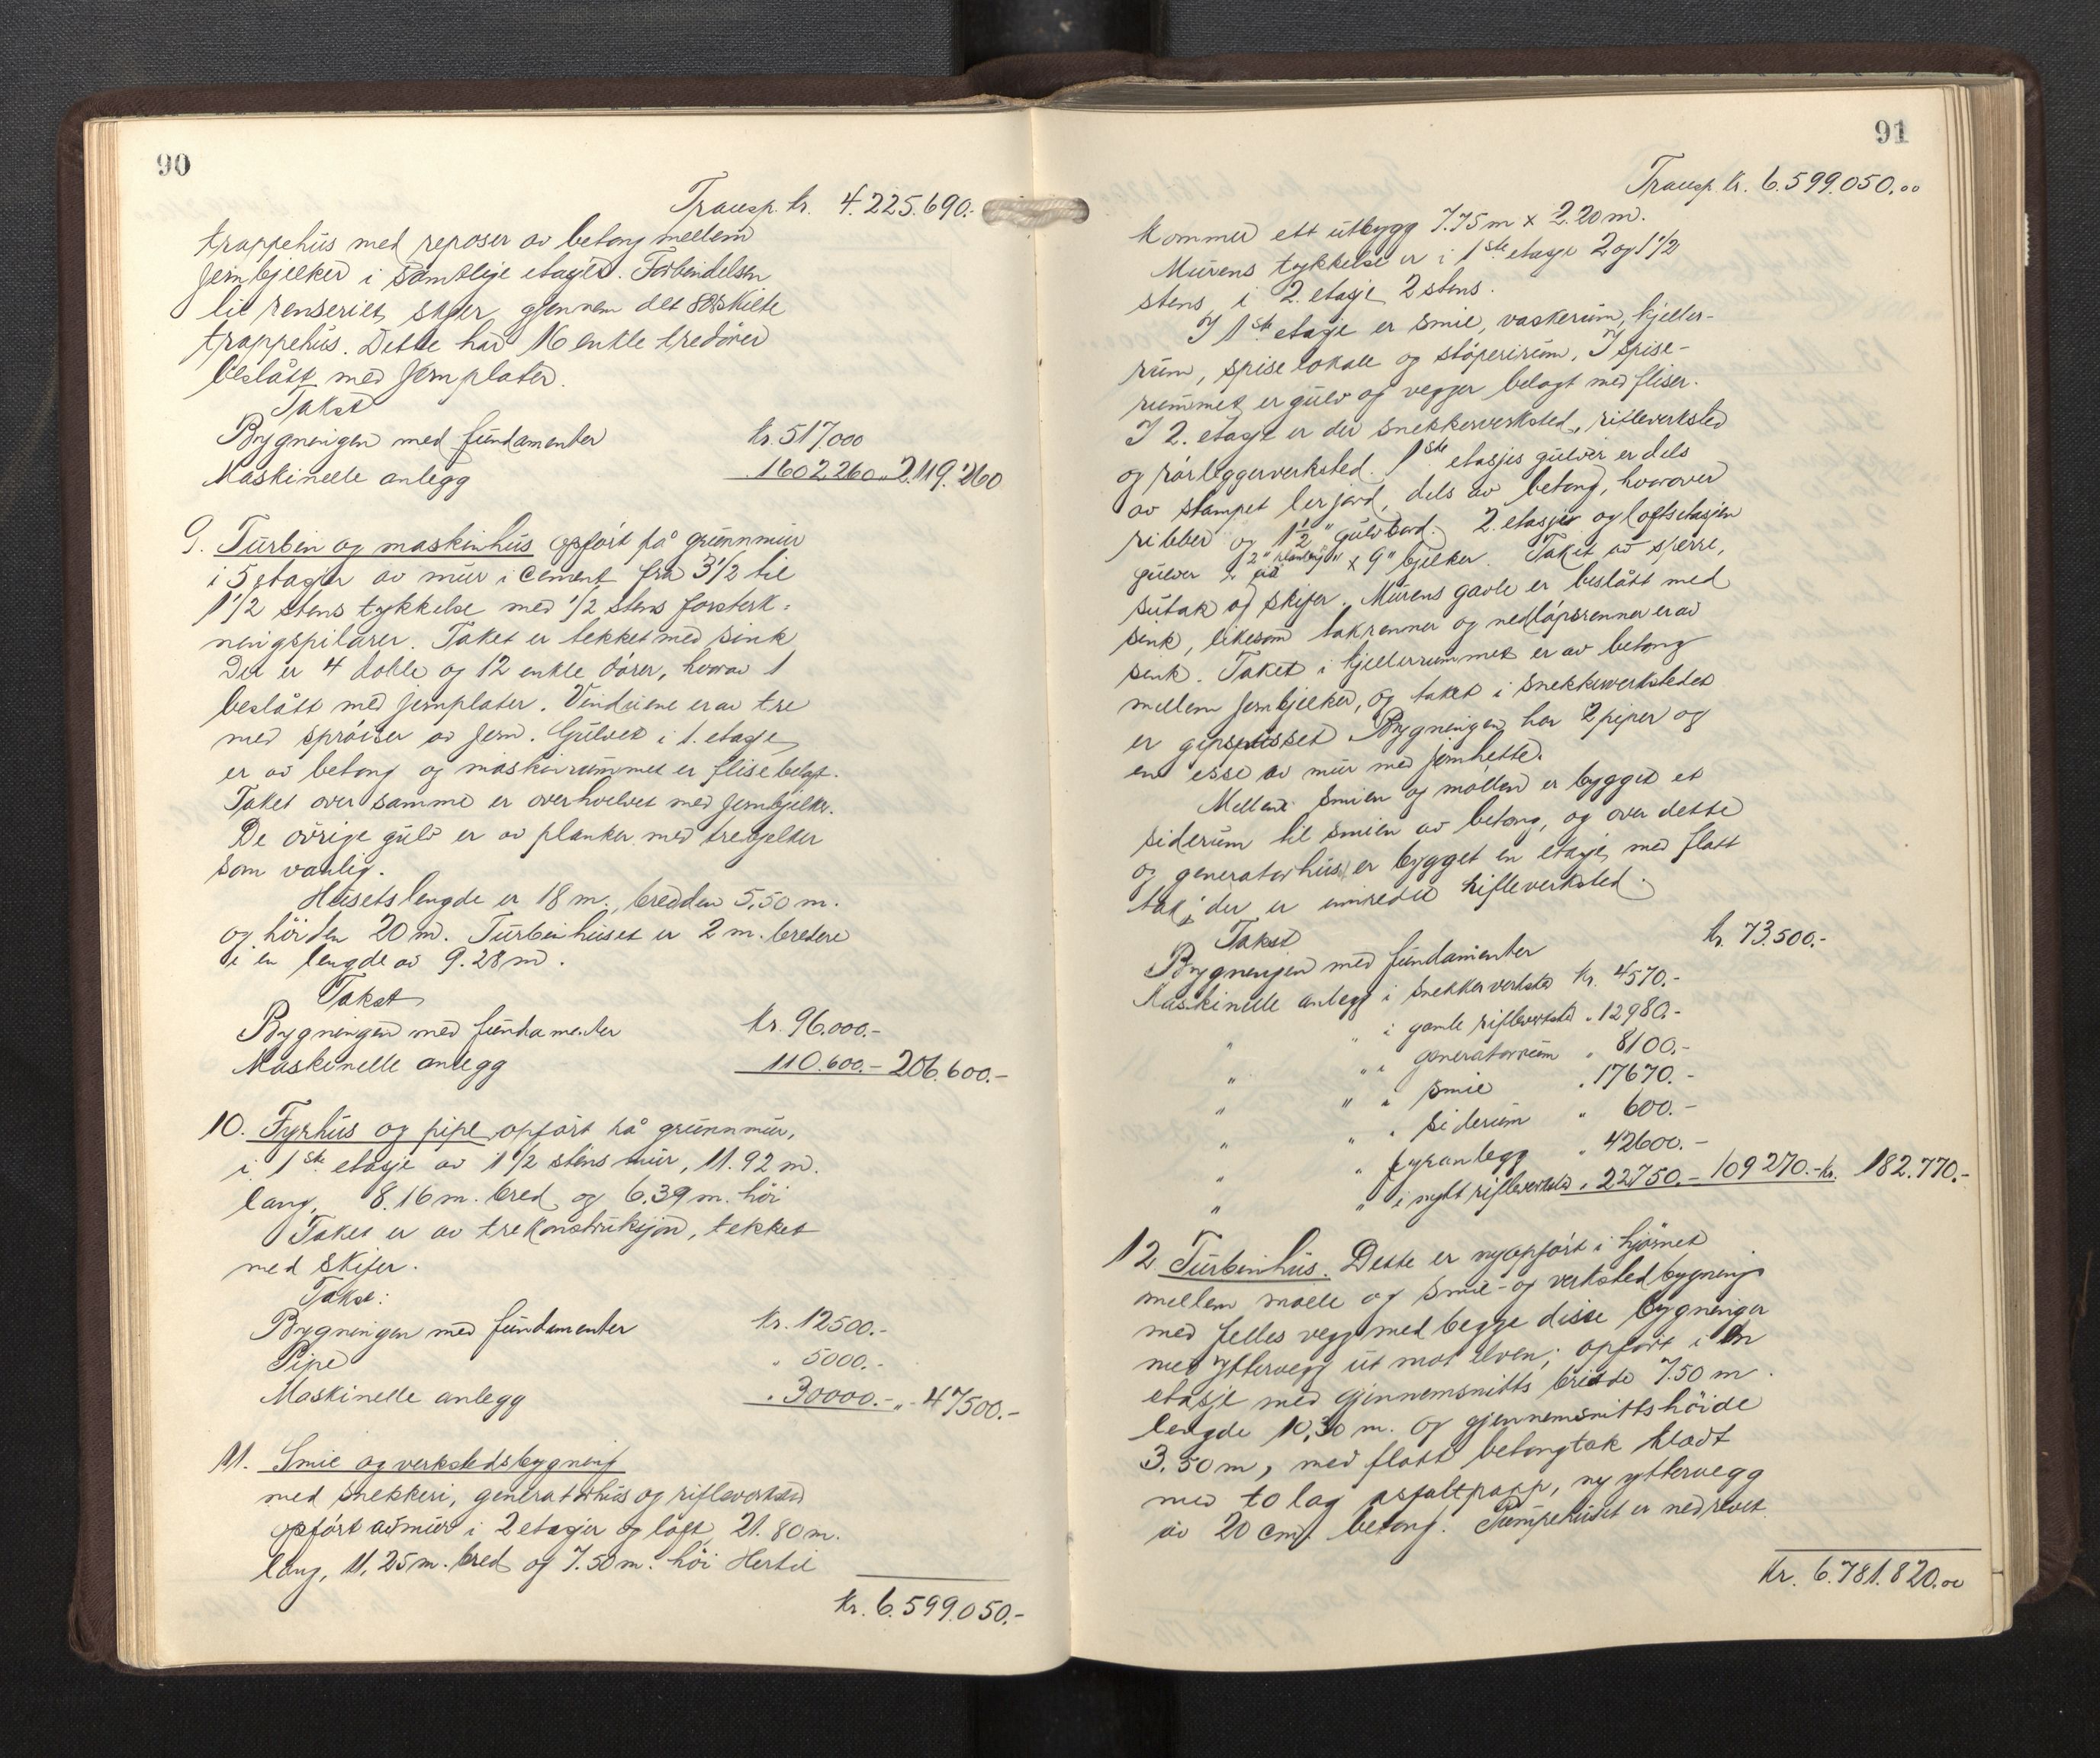 90
Transp. kr. 4.225.690.-
trappehus med reposer av betong mellem
jernbjelker i samtlige etager. Forbindelsen
til renseriet skjer gjennem det særskilte
trappehus. Dette har 16 enkle tredører
beslått med jernplater.
Takst
Bygningen med fundamenter kr. 517000
Maskinelle anlegg 1602260 „ 2.119.260
9. Turbin og maskinhus opført på grunnmur
i 5 etager av mur i cement fra 3 1/2 til
1 1/2 stens tykkelse med 1/2 stens forsterk=
ningspilarer. Taket er tekket med sink
Der er 4 doble og 12 enkle dører, hvorav 1
beslått med jernplater. Vinduene er av tre
med sprosser av jern. Gulvet i 1. etage
er av betong og maskinrummet er flisebelagt.
Taket over samme er overhvelvet med jernbjelker.
De øvrige gulv er av planker med trebjelker
som vanlig.
Husets lengde er 18 m., bredden 5,50 m.
og höiden 20 m. Turbinhuset er 2 m. bredere
i en lengde av 9.28 m.
Takst
Bygningen med fundamenter kr. 96.000.-
Maskinelle anlegg 110.600.- 206.600.-
10. Fyrhus og pipe opført på grunnmur,
i 1ste etasje av 1 1/2 stens mur, 11.92 m.
lang, 8.16 m. bred og 6.39 m. höi
Taket er av trekonstruksjon, tekket
med skifer.
Takst:
Bygningen med fundamenter kr. 12500.-
Pipe „ 5000.-
Maskinelle anlegg „ 30000.- „ 47500.-
11. Smie og verkstedsbygning
med snekkeri, generatorhus og rifleverksted
opført av mur i 2 etager og loft, 21.80 m.
lang, 11,25 m. bred og 7.50 m. höi Hertil
kr. 6.599.050.-
91
Transp. kr. 6.599.050.00
kommer ett utbygg 7.75 m x 2.20 m.
Murens tykkelse er i 1ste etage 2 og 1 1/2
stens, i 2. etasje 2 stens.
I 1ste etage er smie, vaskerum, kjeller-
rum, spiselokale og støperirum. I spise-
rummet er gulv og vegger belagt med fliser.
I 2. etage er der snekkerverksted, rifleverksted
og rørleggerverksted. 1ste etasjes gulver er dels
av stampet lerjord, dels av betong, hvorover
ribber og 1 1/2" gulvbord. 2. etasjes og loftsetasjen
gulver 2" x 9" bjelker. Taket av sperre,
sutak og skifer. Murens gavle er beslått med
sink, likesom takrenner og nedløpsrenner er av
sink. Taket i kjellerrummet er av betong
mellem jernbjelker, og taket i snekkerverkstedet
er gipspusset. Bygningen har 2 piper og
en esse av mur med jernhette.
Mellem smien og møllen er bygget et
siderum til smien av betong, og over dette
og generatorhus er bygget en etasje med flatt
tak; der er innredet rifleverksted.
Takst
Bygningen med fundamenter kr. 73.500.-
Maskinelle anlegg i snekkerverksted kr. 4570.-
„ „ i gamle rifleverksted „ 12980.-
„ „ „ generatorrum „ 8100.-
„ „ „ smie „ 17670.-
„ „ „ siderum „ 600.-
„ „ fyranlegg „ 42600.-
„ „ i nytt rifleverksted „ 22750.- 109270.- kr. 182.770.-
12 Turbinhus. Dette er nyopført i hjørnet
mellem mølle og smie- og verkstedbygning
med felles vegg med begge disse bygninger
med yttervegg ut mot elven; opført i en
etasje med gjennemsnitts bredde 7.50 m.
lengde 10,30 m. og gjennemsnittshöide
3.50 m, med flatt betongtak klædt
med to lag asfaltpapp, ny yttervegg
av 20 cm. betong. Pumpehuset er nedrevet.
Kr. 6.781.820.00